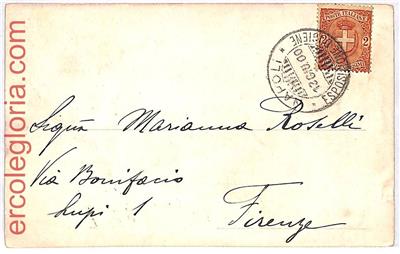 ercolegloria.com
POSTE ITALIANE
2
NAPOLI
ESPOSIZIONE IGIENE
12 GIU 00
Sigña Marianna Roselli
Via Bonifacio
Lupi 1
Firenze